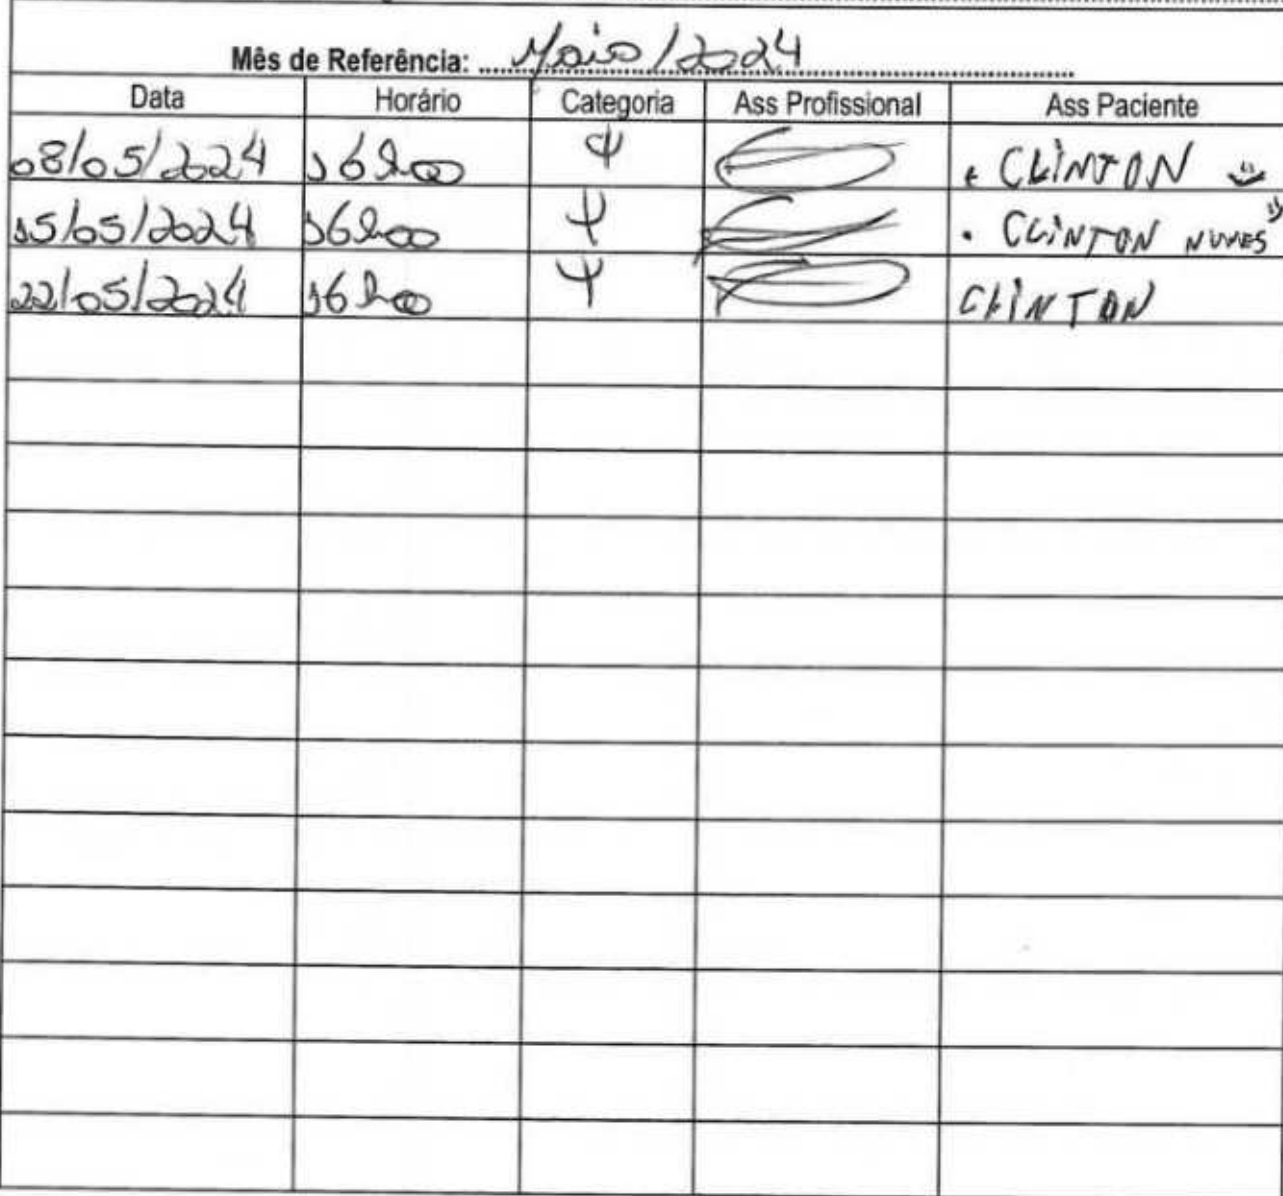 Mês de Referência: Maio/2024
Data Horário Categoria Ass Profissional Ass Paciente
08/05/2024 16h00 Ψ CLINTON
15/05/2024 16h00 Ψ CLINTON NUNES
22/05/2024 16h00 Ψ CLINTON